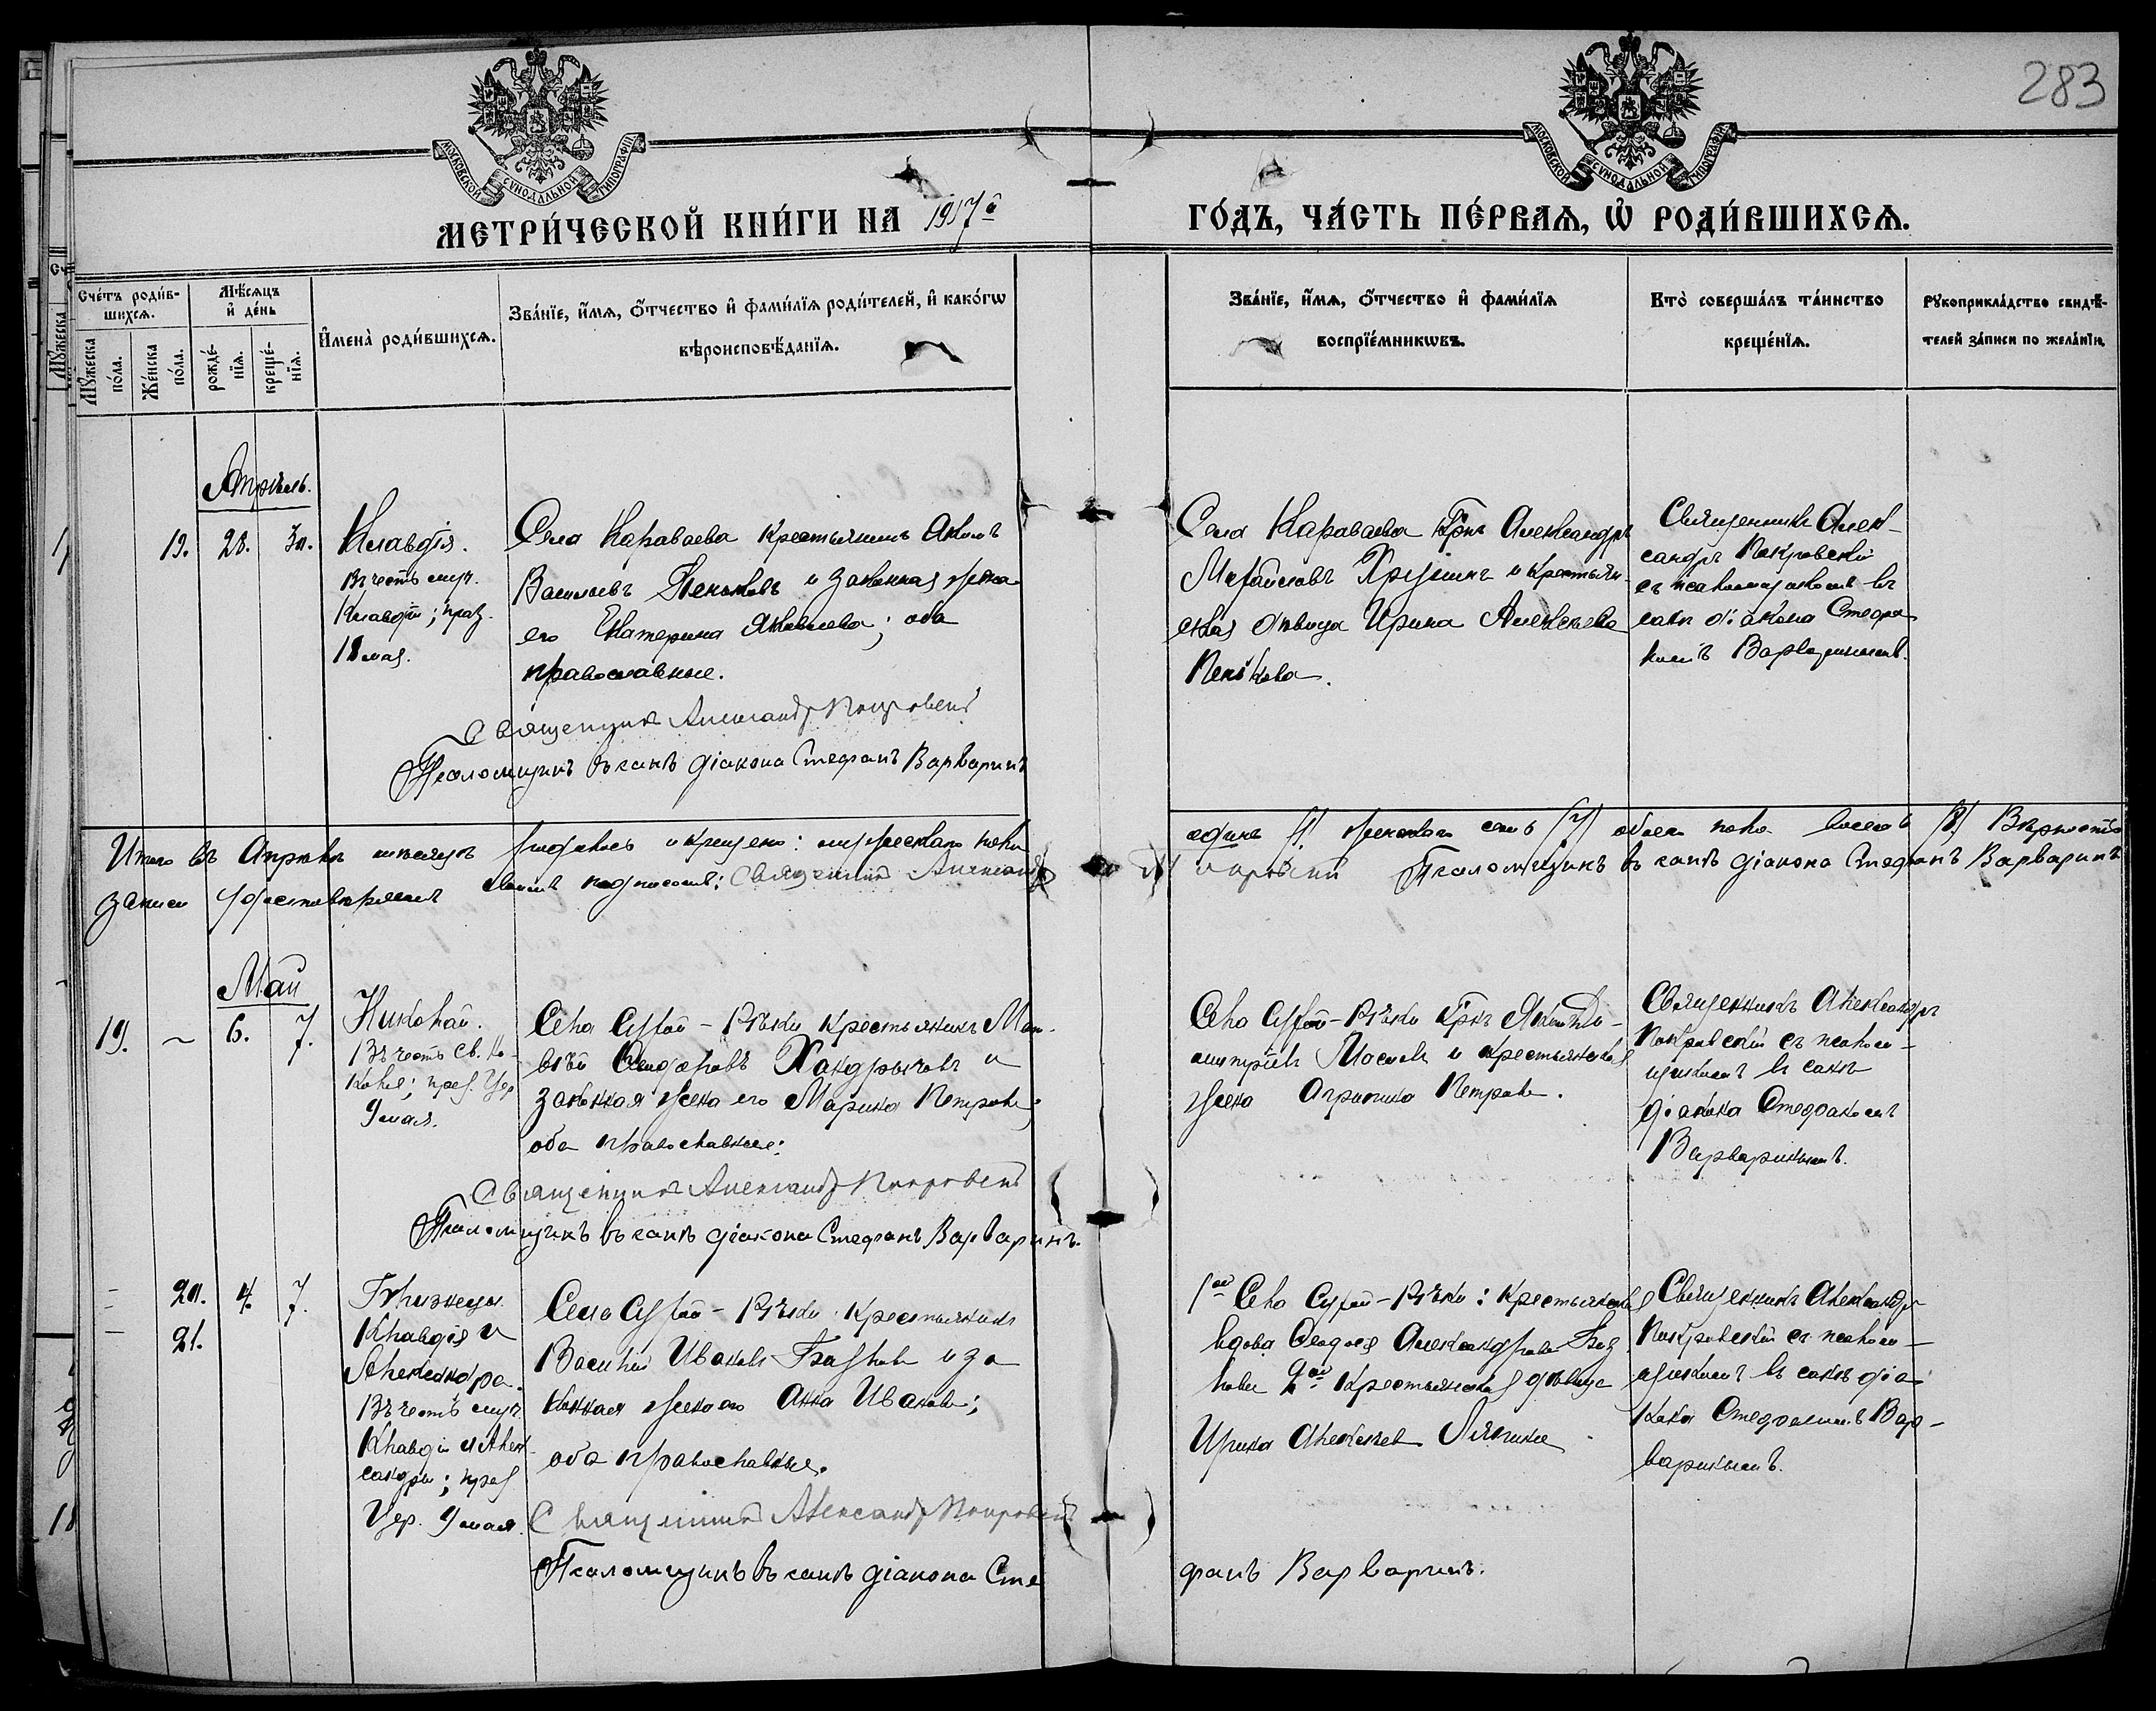 283
МОСКОВСКОЙ СѴНОДАЛЬНОЙ ТИПОГРАФІИ
МОСКОВСКОЙ СѴНОДАЛЬНОЙ ТИПОГРАФІИ
МЕТРИ́ЧЕСКОЙ КНИ́ГИ НА 1917й
ГО́ДЪ, ЧА́СТЬ ПЕ́РВАЯ, Ѡ РОДИ́ВШИХСЯ.
Сче́тъ роди́в-
шихся.
Мꙋ́жеска
по́ла.
Же́нска
по́ла.
Мѣ́сяцъ
и҆ де́нь
рожде́-
нїя.
креще́-
нїя.
И҆мена̀ роди́вшихся.
Зва́нїе, и҆́мя, ѻ҆́тчество и҆ фамѝлїя роди́телей, и҆ како́гѡ
вѣроисповѣ́данїя.
Зва́нїе, и҆́мя, ѻ҆́тчество и҆ фами́лїя
воспрїе́мникѡвъ.
Кто̀ соверша́лъ та́инство
креще́нїя.
Рꙋкоприкла́дство свидѣ́-
телей за́писи по жела́нїю.
Апрѣль.
19. 28. 30.
Клавдія.
Въ честь муч.
Клавдіи; праз.
18 мая.
Села Караваева крестьянинъ
Васильевъ Пеньковъ и законная жена
его Екатерина Яковлева; оба
православные.
Священникъ Александръ Покровскій
Псаломщикъ въ санѣ діакона Стефанъ Варваринъ
Села Караваева Александръ
и крестьян-
ская дѣвица Ирина Алексѣева
Пенькова.
Священникъ Алек-
сандръ Покровскій
съ псаломщикомъ въ
санѣ діакона Стефа-
номъ Варваринымъ.
Итого въ Апрѣлѣ мѣсяцѣ родилось и крещено: мужескаго пола
одинъ /1/ женскаго семь /7/ обоего пола восемь /8/ Вѣрность
записи удостовѣряемъ своимъ подписомъ: Священникъ Александръ
Покровскій Псаломщикъ въ санѣ діакона Стефанъ Варваринъ
Май
19. ~ 6. 7.
Николай.
Въ честь св. Ни-
колая; праз. Цер.
9 мая.
Села Сухой-Рѣчки крестьянинъ Мат-
вѣй и
законная жена его Марина Петрова;
оба православные:
Священникъ Александръ Покровскій
Псаломщикъ въ санѣ діакона Стефанъ Варваринъ.
Села Сухой-Рѣчки
и крестьянская
жена Агрипина Петрова.
Священникъ Александръ
Покровскій съ псалом-
щикомъ въ санѣ
діакона Стефаномъ
Варваринымъ.
20. 4. 7.
21.
Близнецы
Клавдія и
Александра.
Въ честь муч.
Клавдіи и Алек-
сандры; праз.
Цер. 9 мая.
Села Сухой-Рѣчки крестьянинъ
Василій Ивановъ и за-
конная жена его Анна Иванова;
оба православные.
Священникъ Александръ Покровскій
Псаломщикъ въ санѣ діакона Сте
фанъ Варваринъ.
1ой Села Сухой-Рѣчки: крестьянская
вдова Александрова
2ой крестьянская дѣвица
Ирина Алексѣева
Священникъ Александръ
Покровскій съ псалом-
щикомъ въ санѣ діа-
кона Стефаномъ Вар-
варинымъ.